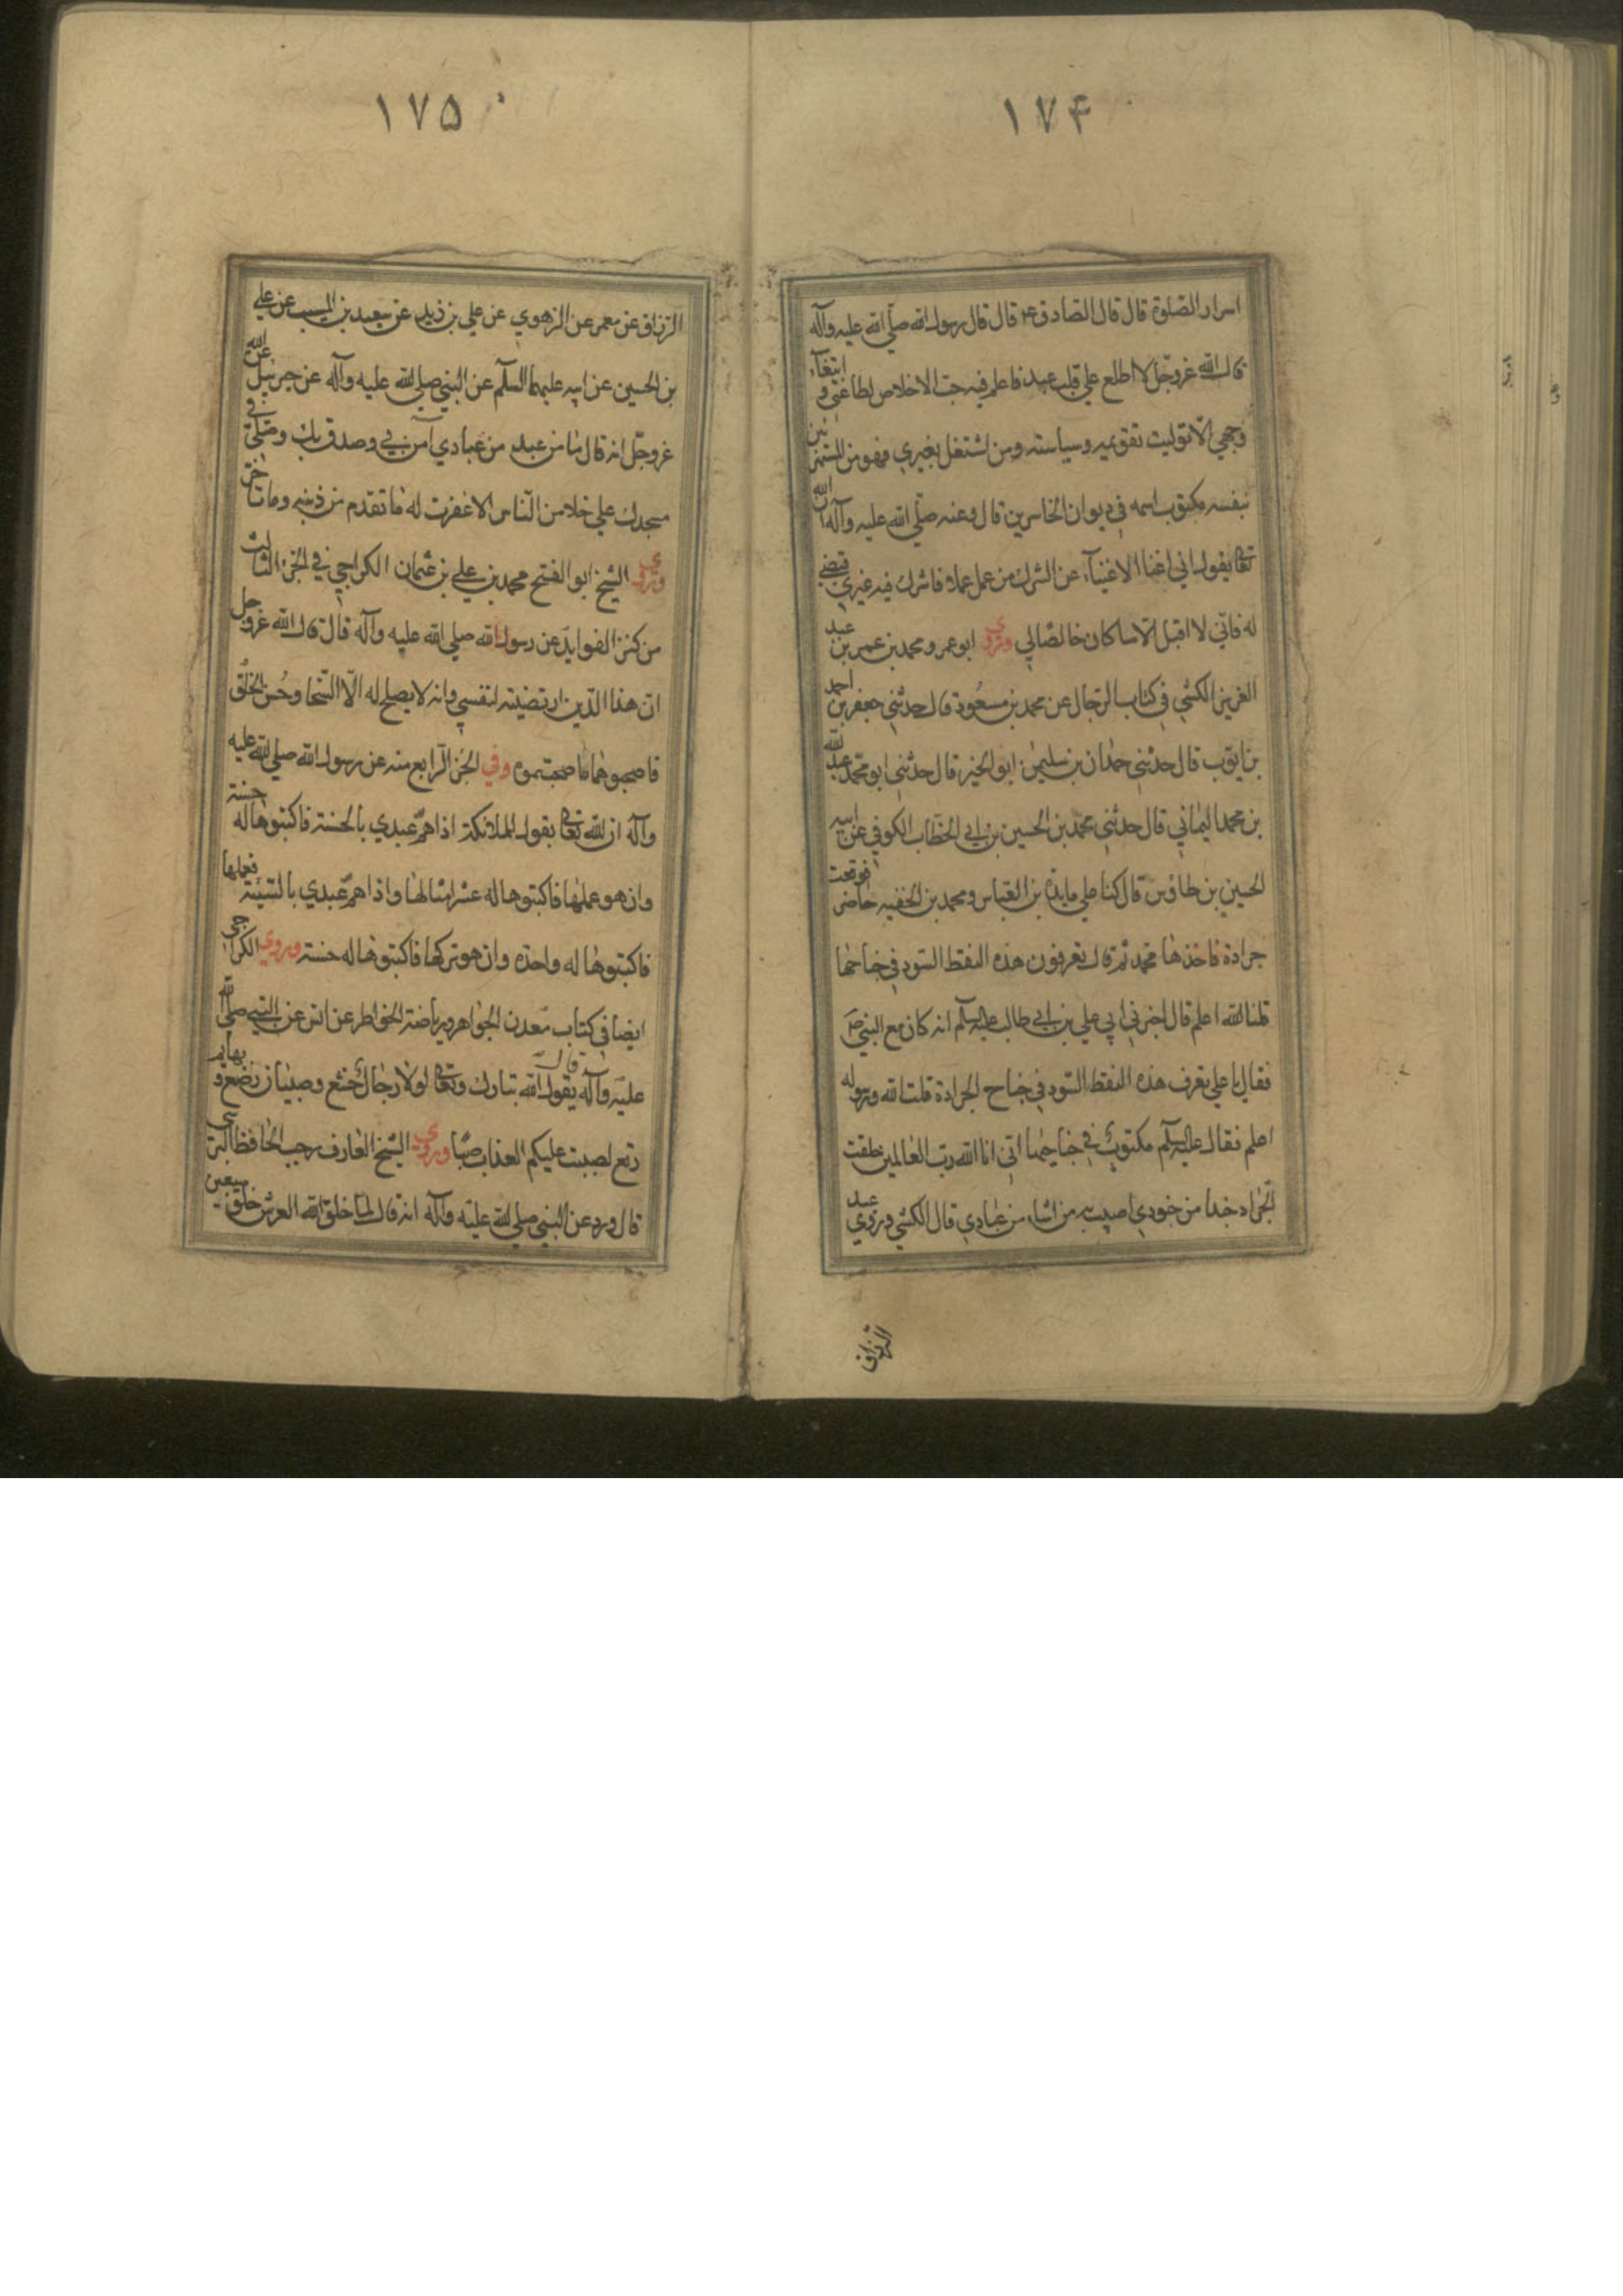 ۱۷۴
اسرار الصّلوة قال قال الصّادق ع قال قال رسول الله صلّي الله عليه وآله
قال الله عزوجل لا اطلع علي قلب عبد فاعلم فيه حب الاخلاص لطاعتي و ابتغآء
وجهي الّا توليت تقويمه وسياسته ومن اشتغل بغيري فهو من المستهزئين
بنفسه مكتوب اسمه في ديوان الخاسرين قال وعنه صلّي الله عليه وآله ان الله
تعا يقول اني اغنا الاغنيآء عن الشرك من عمل عملا فاشرك فيه غيري
له فاني لا اقبل الّا ما كان خالصًا لي وروي ابو عمرو محمد بن عمر بن عبد
العزيز الكشي في كتاب الرجال عن محمد بن مسعُود قال حدثني جعفر بن احمد
بن ايوب قال حدثني حمدان بن سليمن ابو الخير قال حدثني ابو محمد عبد الله
بن محمد اليماني قال حدثني محمد بن الحسين بن ابي الخطاب الكوفي عن ابيه
الحسين بن طاؤس قال كنا علي مايدة بن العباس ومحمد بن الحنفيه حاضر فوقعت
جرادة فاخذها محمد ثم قال تعرفون هذه النقط السّود في جناحها
قلنا الله اعلم قال اخبرني ابي علي بن ابي طالب عليه السلم انه كان مع النبي ص
فقال يا علي تعرف هذه النقط السّود في جناح الجرادة قلت الله ورسوله
اعلم فقال عليه السلم مكتوب في جناحيها انّي انا الله رب العالمين خلقت
الجراد جندا من جنودي اصيب به من اشاء من عبادي قال الكشي وروي عبد
الرزاق
۱۷۵
الرزاق عن معمر عن الزهري عن علي بن زيد عن سعيد بن المسيب عن علي
بن الحسين عن ابيه عليهما السلم عن النبي صلي الله عليه وآله عن جبرئيل عن الله
عزوجل انه قال ما من عبد من عبادي آمن بي وصدق بك وصلّي في
مسجدك علي خلا من النّاس الا غفرت له ما تقدم من ذنبه وما تاخر
وروي الشيخ ابو الفتح محمد بن علي بن عثمان الكراجي في الجزء الثالث
من كنز الفوايد عن رسول الله صلي الله عليه وآله قال قال الله عزوجل
ان هذا الدّين ارتضيته لنفسي وانه لا يصلح له الّا السّخا وحُسن الخلُق
فاصحبوهما ما صحبتموه وفي الجُزء الرّابع منه عن رسول الله صلي الله عليه
وآله ان الله تعا يقول للملائكة اذا همّ عبدي بالحسنة فاكتبوها له حسنة
وان هو عملها فاكتبوها له عشر امثالها واذا همّ عبدي بالسّيئة فعملها
فاكتبوها له واحده وان هو تركها فاكتبوها له حسنة وروي الكراجي
ايضا في كتاب معدن الجواهر ورياضة الخواطر عن انس عن النبي صلي الله
عليه وآله قال يقول الله تبارك وتعا لولا رجال خشع وصبيان رضع و بهايم
رتع لصببت عليكم العذاب صبّا وروي الشيخ العارف رجب الحافظ البرسي
قال ورد عن النبي صلي الله عليه وآله انه قال لما خلق الله العرش خلق سبعين